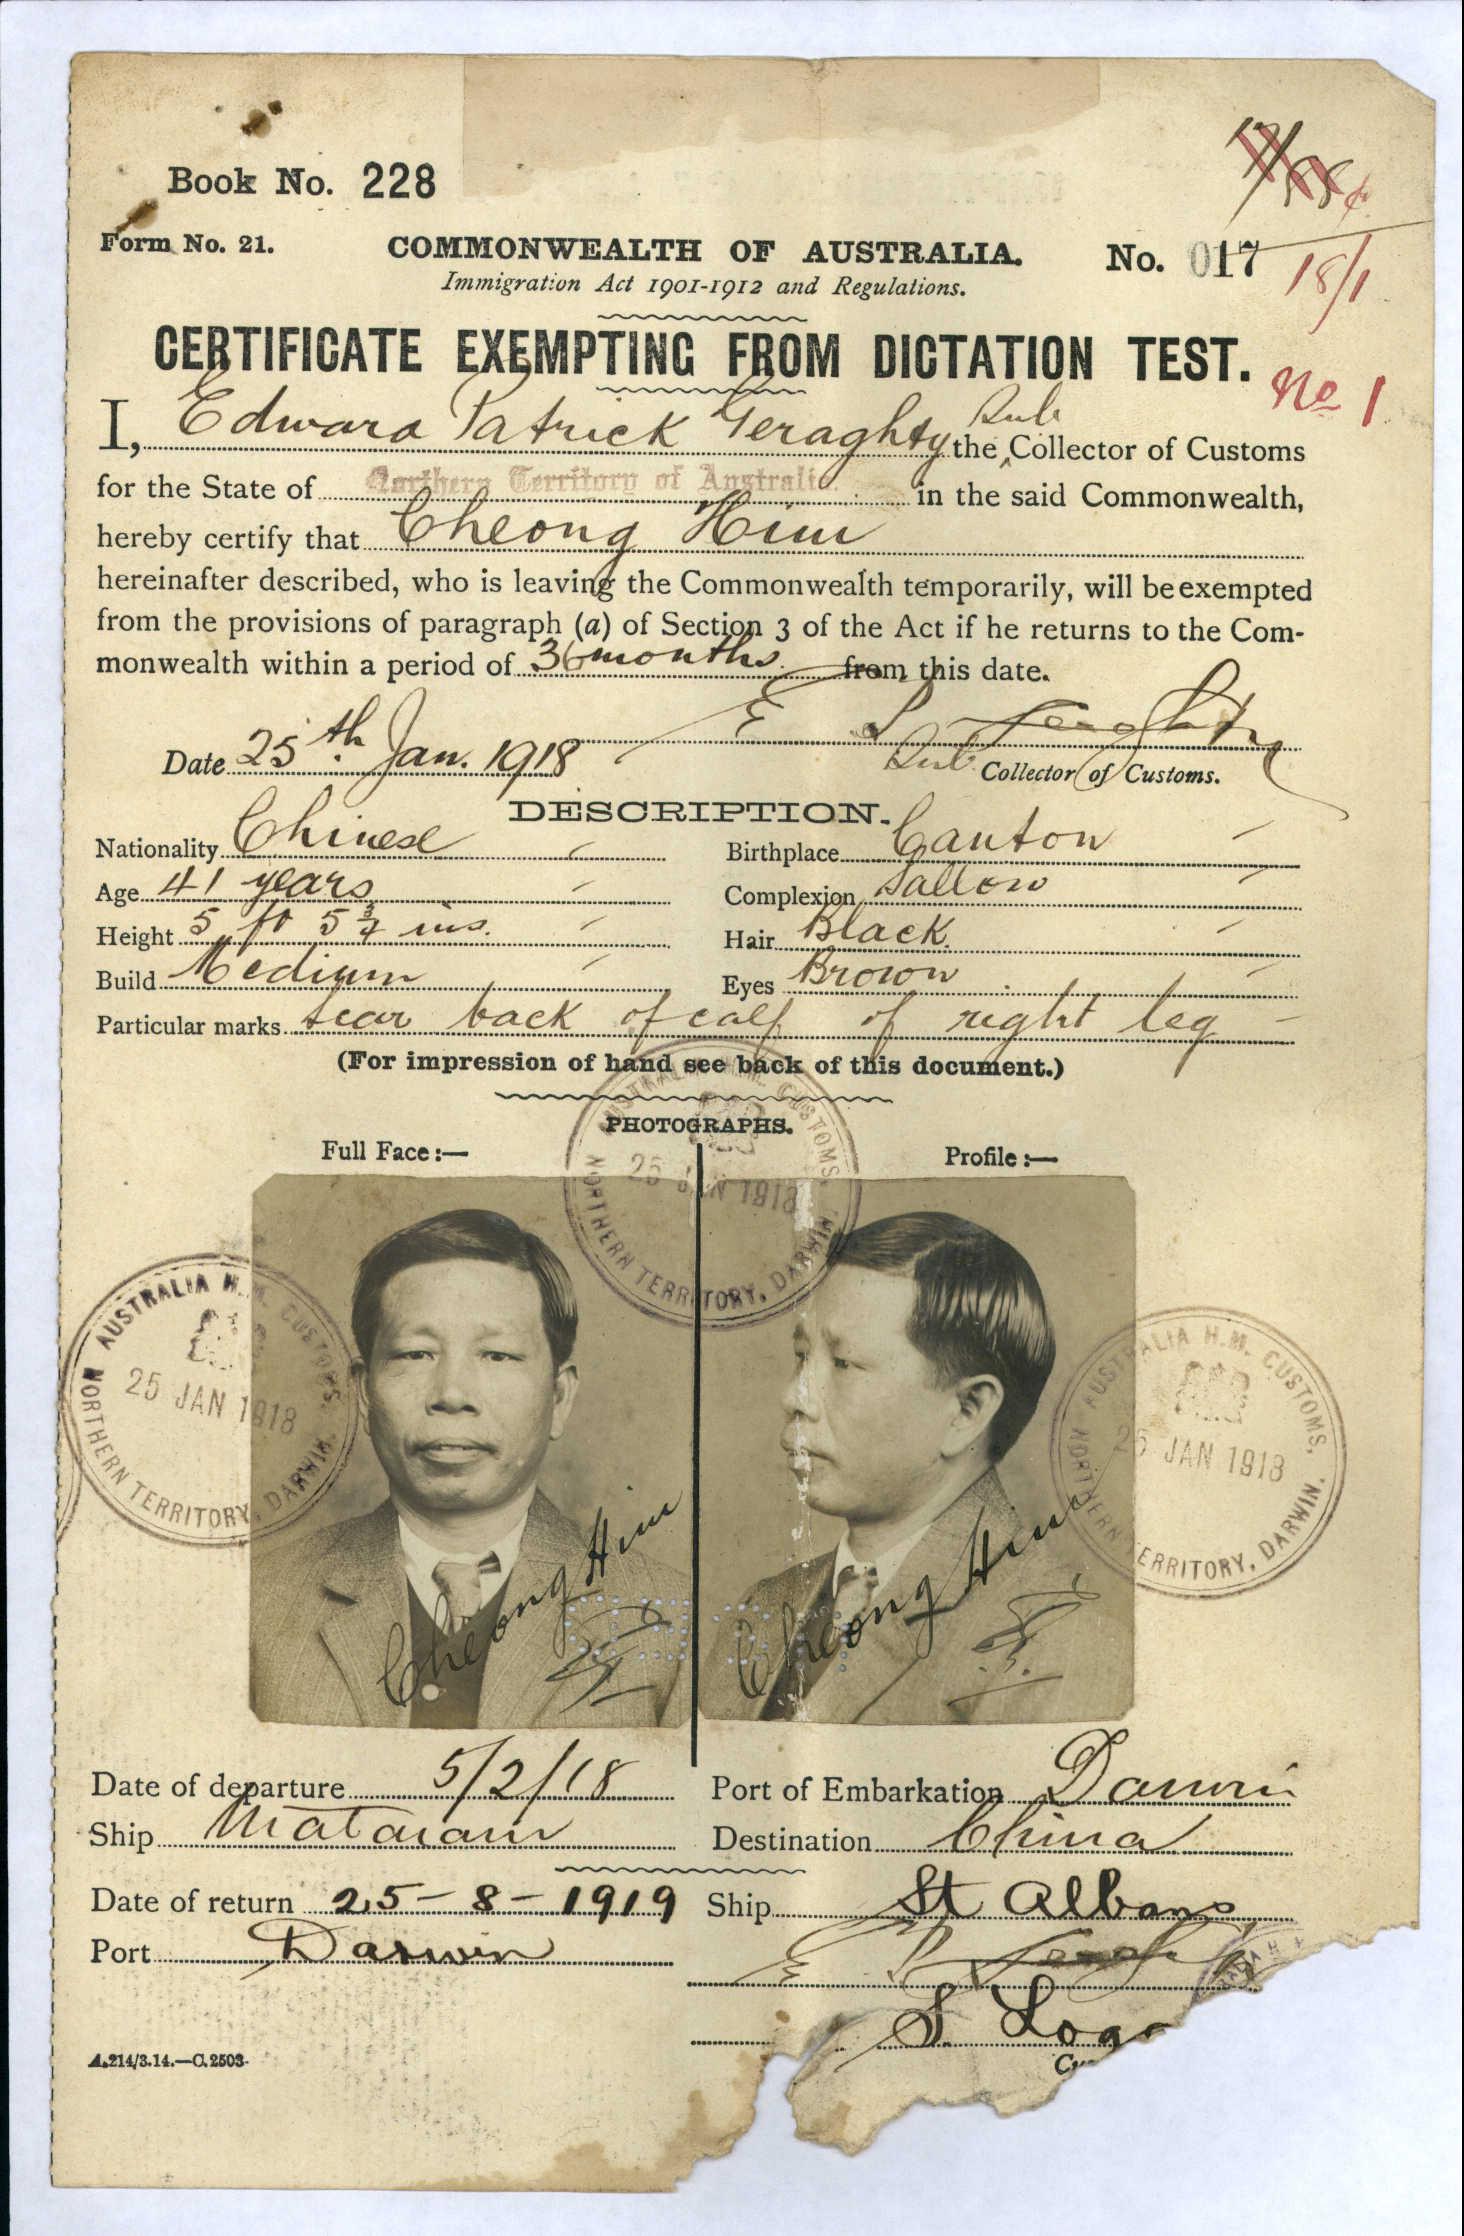 17/88
Book No. 228
Form No. 21.
COMMONWEALTH OF AUSTRALIA.
No. 017
18/1
Immigration Act 1901-1912 and Regulations.
CERTIFICATE EXEMPTING FROM DICTATION TEST.
No 1
I, Edward Patrick Geraghty the Sub Collector of Customs
for the State of Northern Territory of Australia. in the said Commonwealth,
hereby certify that Cheong Him
hereinafter described, who is leaving the Commonwealth temporarily, will be exempted
from the provisions of paragraph (a) of Section 3 of the Act if he returns to the Com-
monwealth within a period of 36 months from this date.
E P Geraghty
Date 25th Jan. 1918
Sub Collector of Customs.
DESCRIPTION.
Nationality Chinese
Birthplace Canton
Age 41 years
Complexion Sallow
Height 5 ft 5 3/4 ins.
Hair Black
Build Medium
Eyes Brown
Particular marks Scar back of calf of right leg
(For impression of hand see back of this document.)
PHOTOGRAPHS.
Full Face:—
Profile:—
AUSTRALIA H.M. CUSTOMS. 25 JAN 1918 NORTHERN TERRITORY, DARWIN.
AUSTRALIA H.M. CUSTOMS. 25 JAN 1918 NORTHERN TERRITORY, DARWIN.
AUSTRALIA H.M. CUSTOMS. 25 JAN 1918 NORTHERN TERRITORY, DARWIN.
Cheong Him
Cheong Him
Date of departure 5/2/18
Port of Embarkation Darwin
Ship Mataram
Destination China
Date of return 25-8-1919
Ship St Albans
Port Darwin
E P Geraghty
S. Loga
A.214/3.14.—C.2503.
Cu